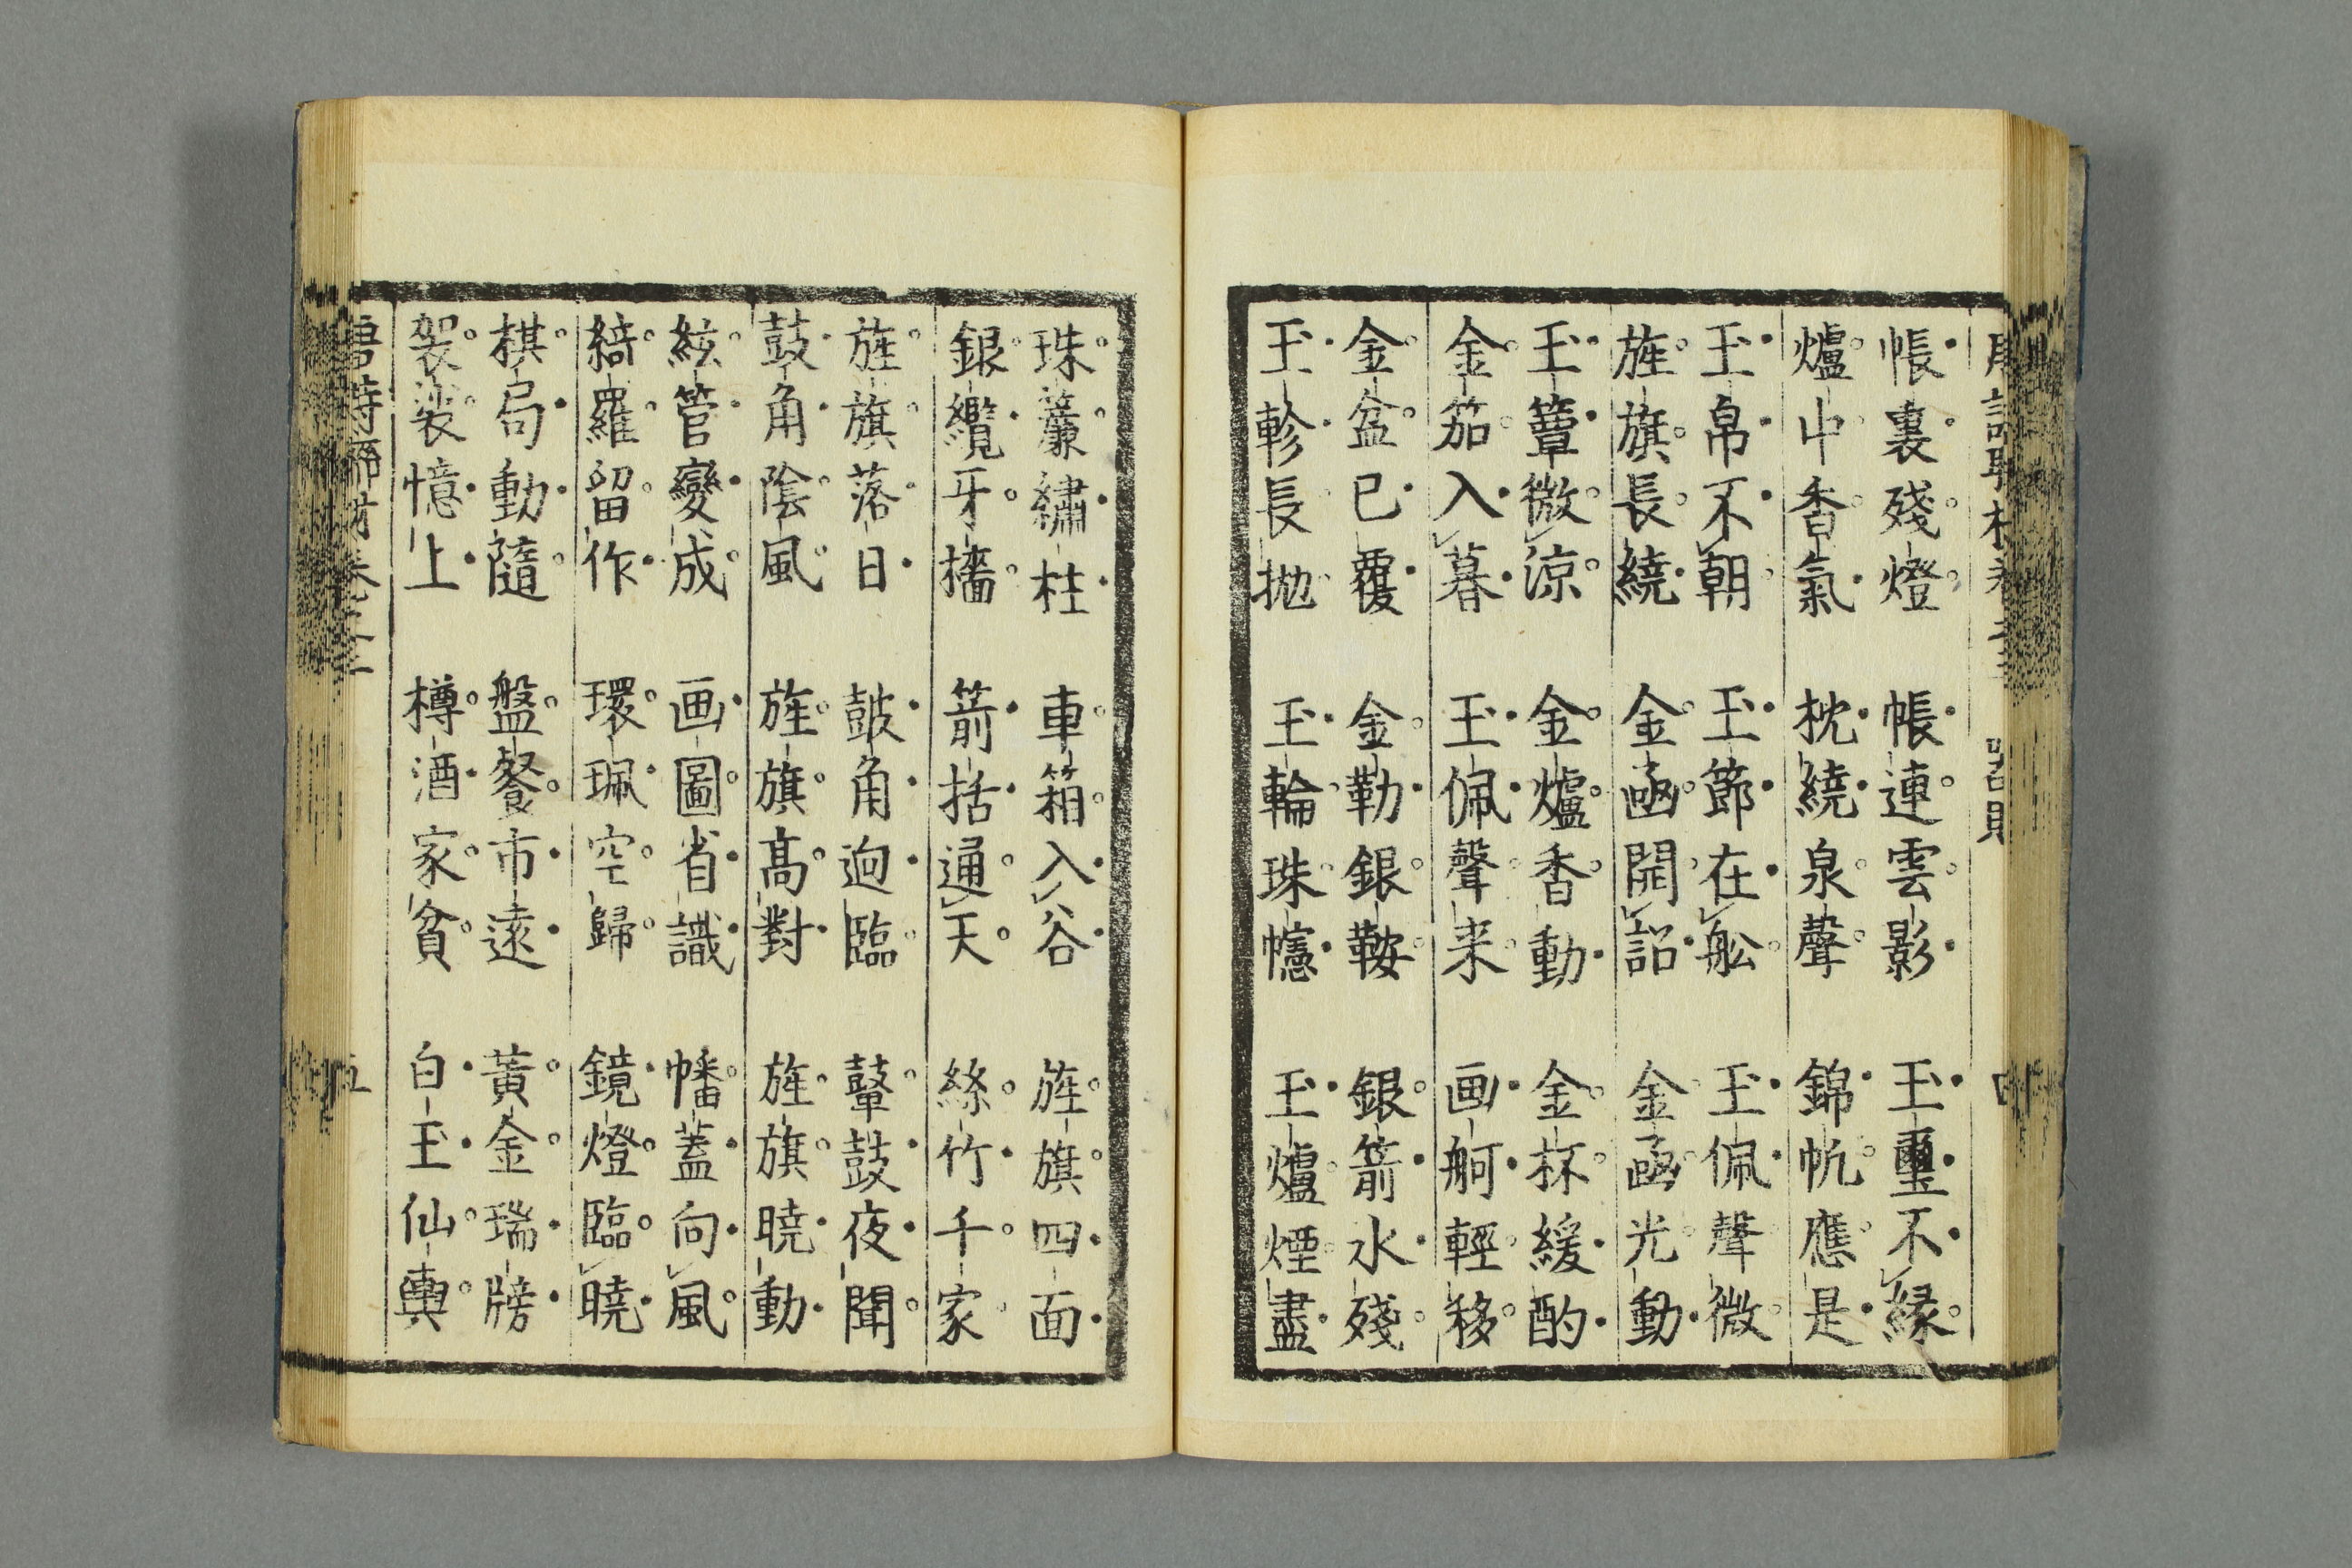 帳裏殘燈 帳連雲影 玉璽不緣
爐中香氣 枕繞泉聲 錦帆應是
玉帛不朝 玉節在舩 玉佩聲微
旌旗長繞 金凾開詔 金凾光動
玉簟微涼 金爐香動 金杯緩酌
金笳入暮 玉佩聲来 画舸輕移
金盆已覆 金勒銀鞍 銀箭水殘
玉軫長抛 玉輪珠幰 玉爐煙盡
珠簾繡柱 車箱入谷 旌旗四面
銀纜牙檣 箭括通天 絲竹千家
旌旗落日 皷角逈臨 鼙鼓夜聞
鼓角陰風 旌旗髙對 旌旗曉動
絃管變成 画圖省識 幡蓋向風
綺羅留作 環珮空歸 鏡燈臨曉
棋局動隨 盤餐市遠 黃金瑞牓
袈裟憶上 樽酒家貧 白玉仙輿
五